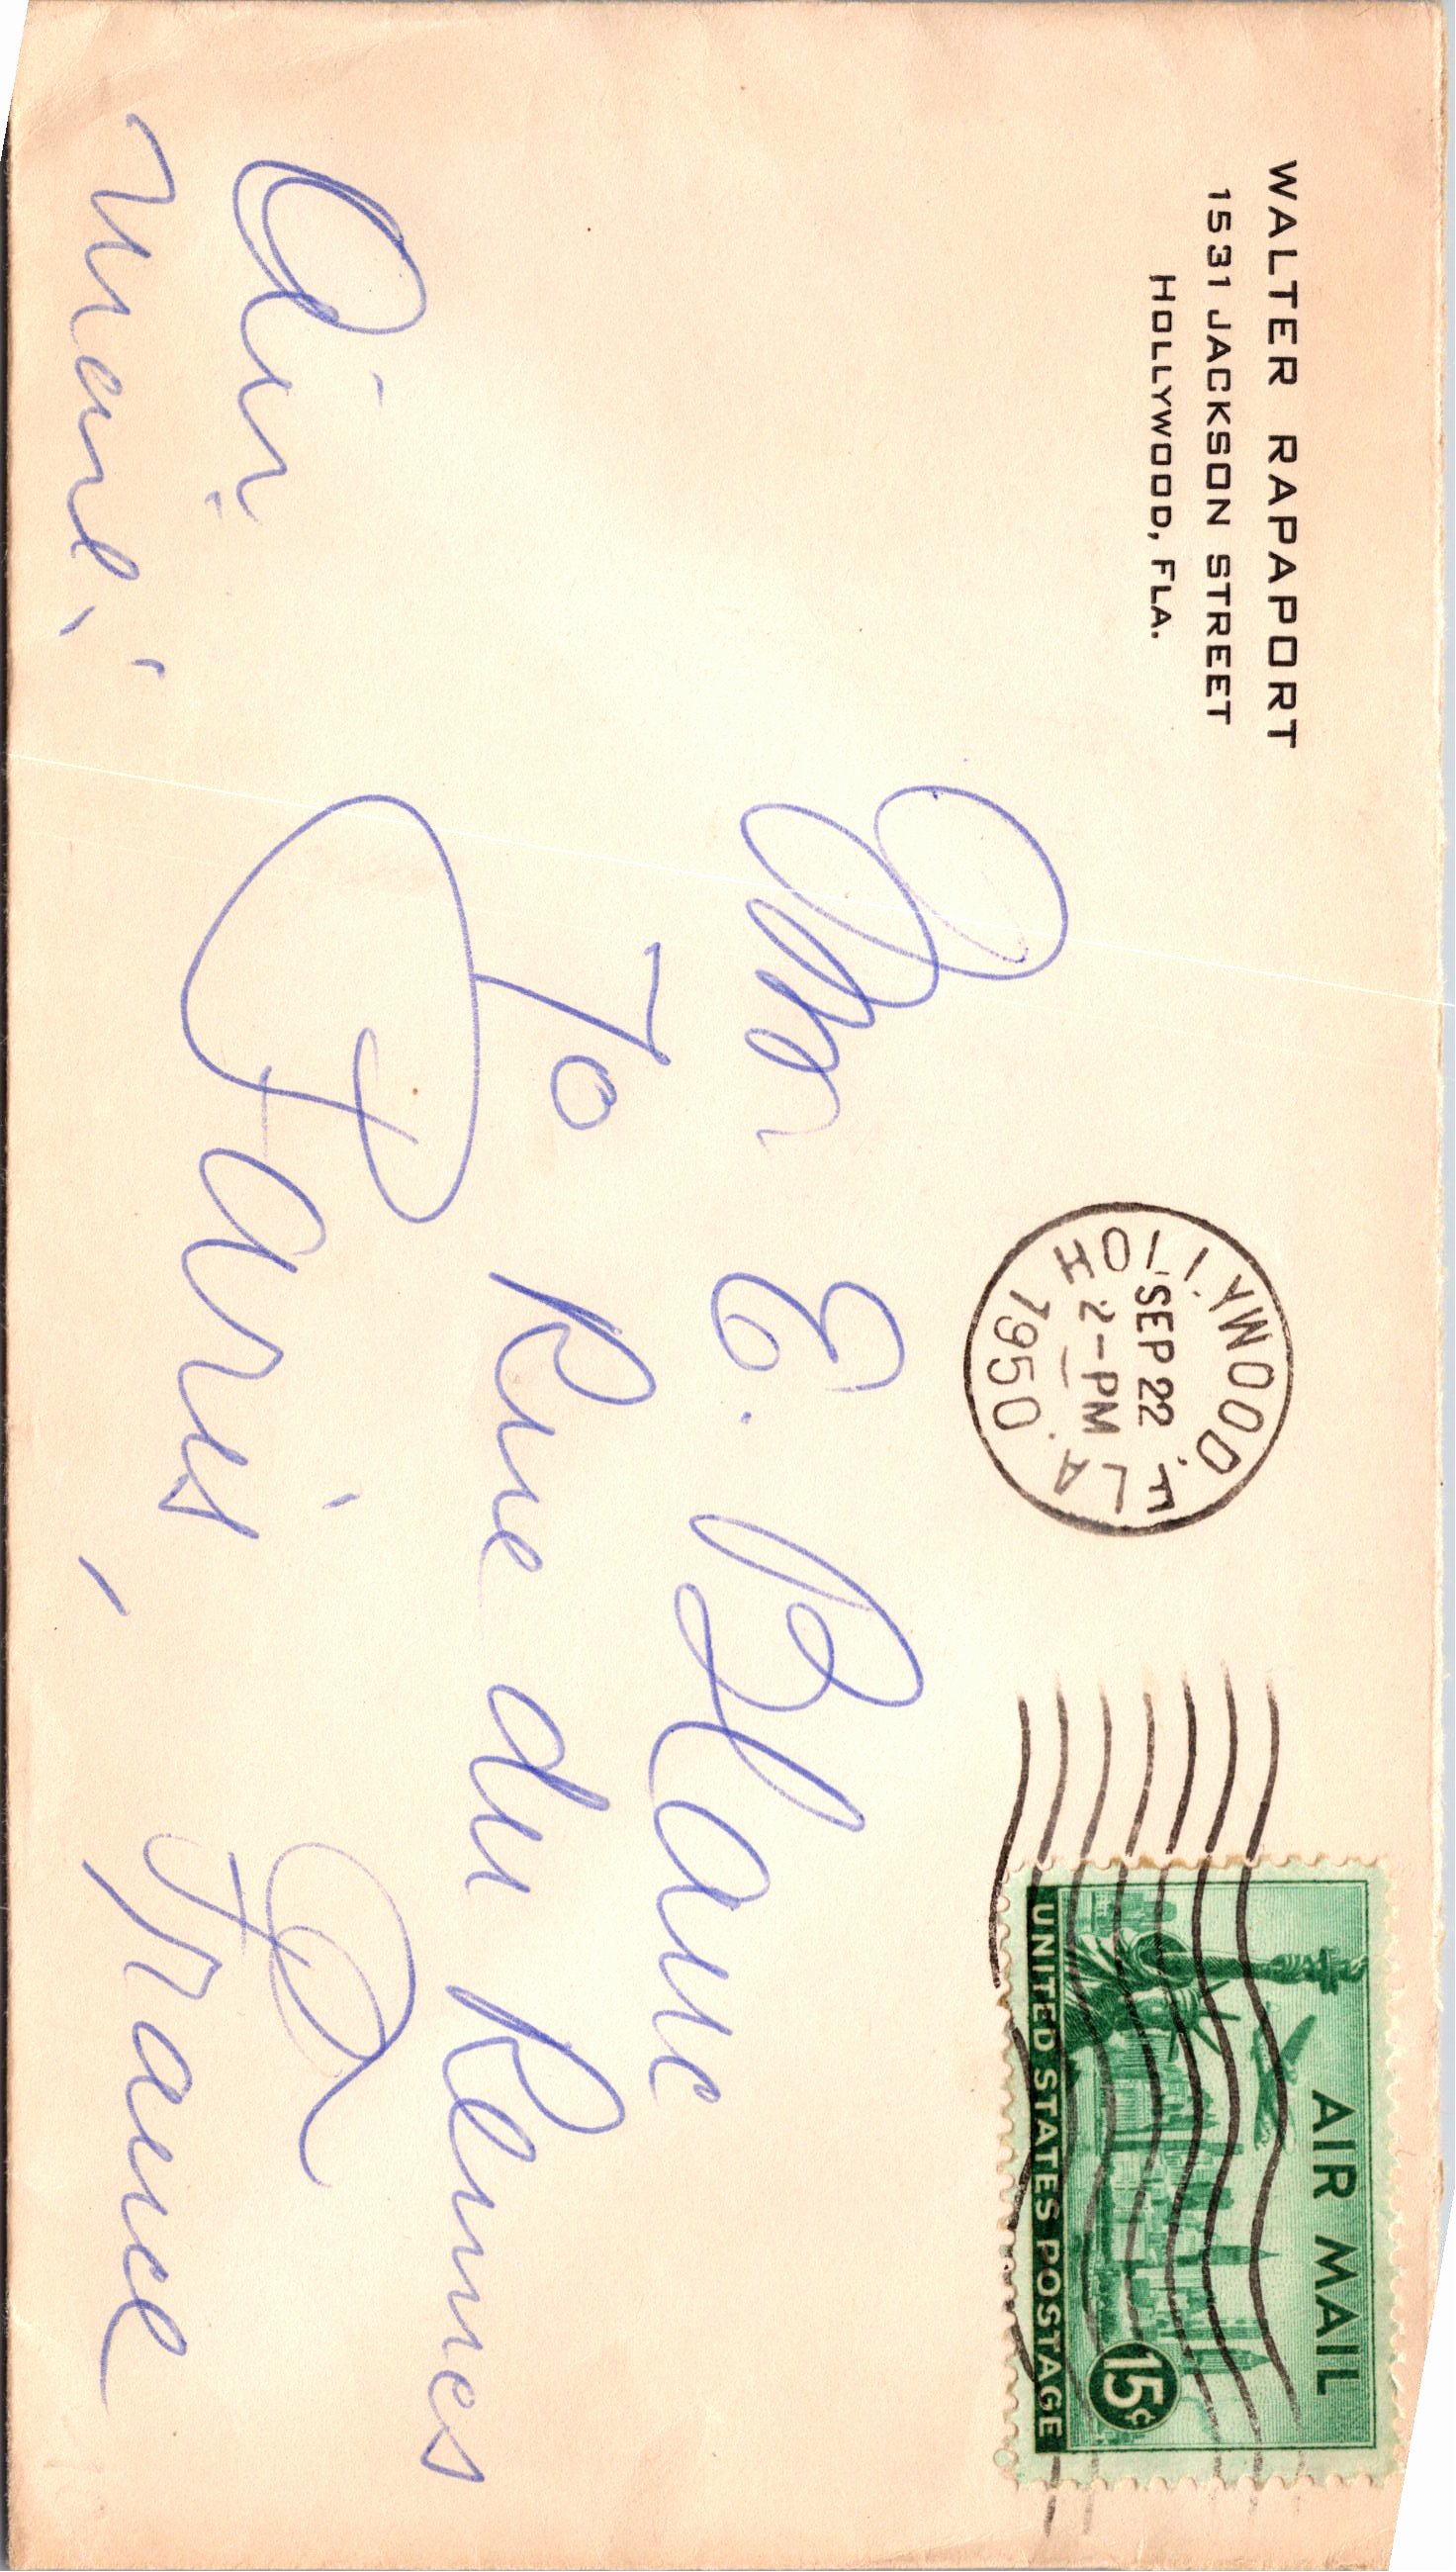 WALTER RAPAPORT
1531 JACKSON STREET
HOLLYWOOD, FLA.
HOLLYWOOD, FLA.
SEP 22
2-PM
1950
AIR MAIL
15¢
UNITED STATES POSTAGE
E. Blanc
70 Rue du Rennes
Paris,
France
Air
Mail